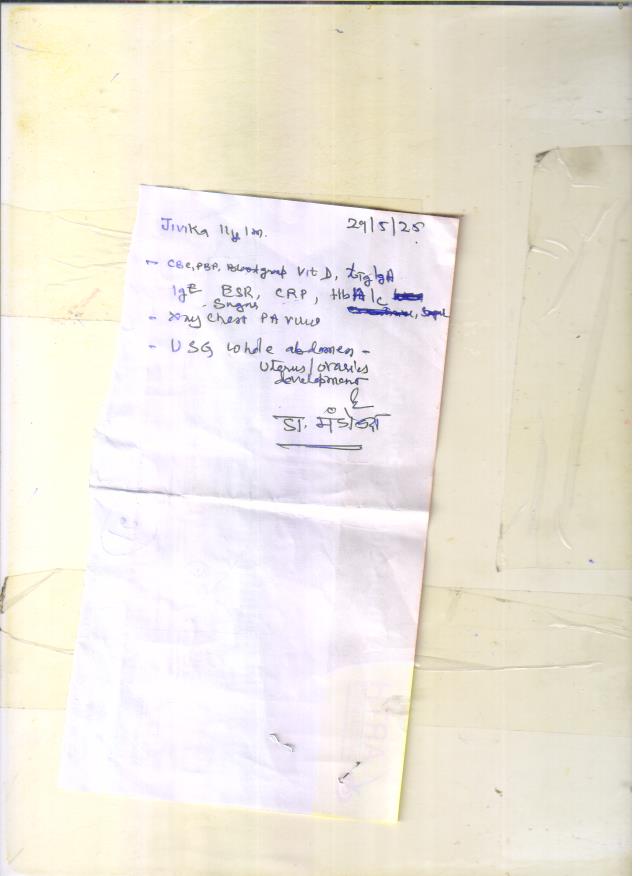 Jivika 11y/m. 29/5/25
- CBC, PBP, Bloodgroup Vit D, tTg IgA
IgE ESR, CRP, HbA1c
- Xray Chest PA view
- USG whole abdomen -
Uterus/ovaries
development
डा.